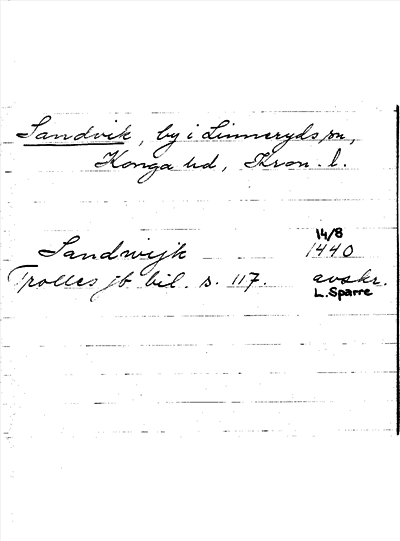 Sandvik, by i Linneryds sn,
Konga hd, Kron. l.
14/8
Sandwijk 1440
Trolles jb bil. s. 117. avskr.
L. Sparre